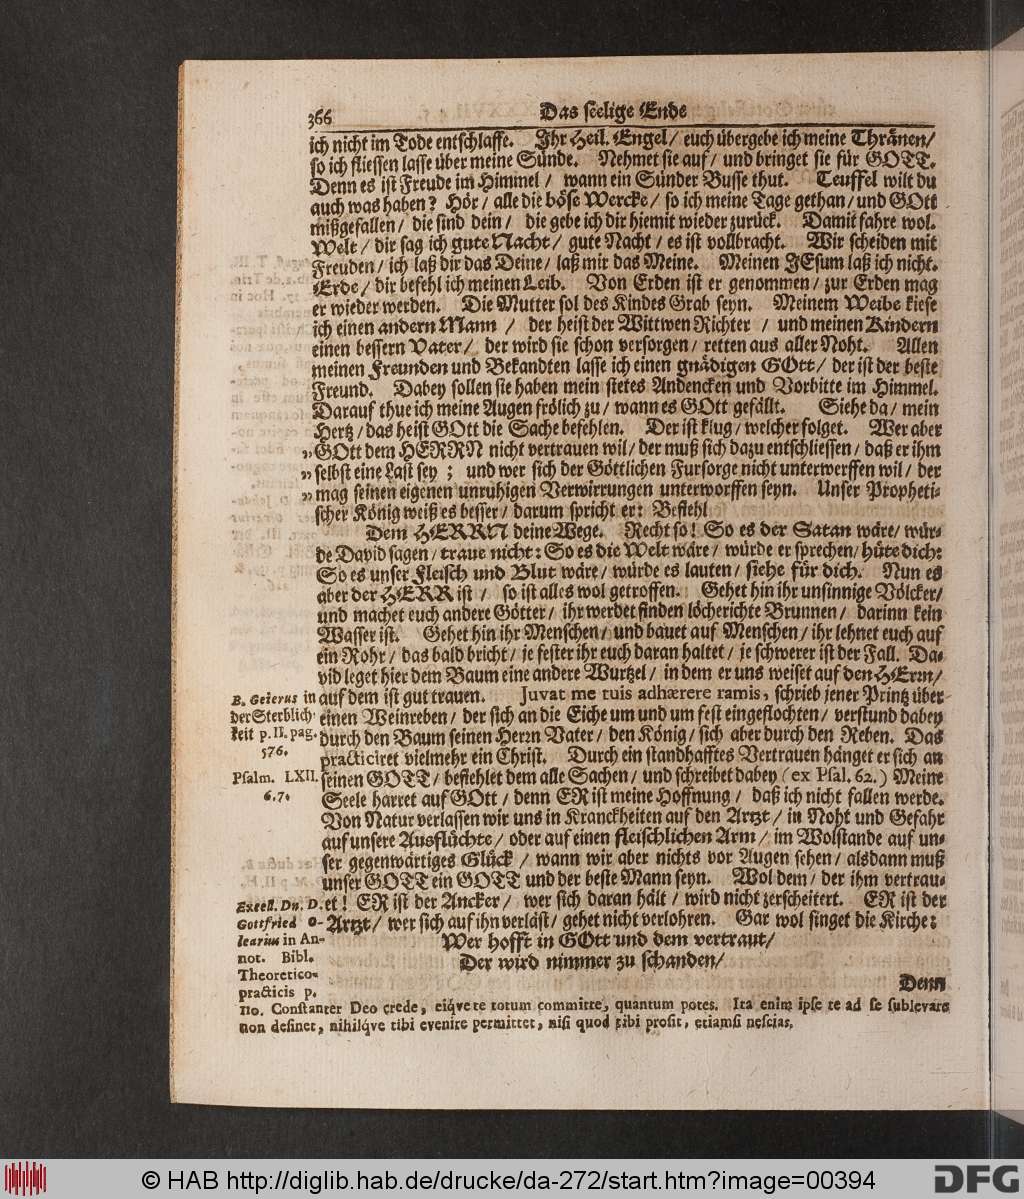 366
Das seelige Ende
ich nicht im Tode entschlaffe. Ihr Heil. Engel/ euch übergebe ich meine Thränen/
so ich fliessen lasse über meine Sünde. Nehmet sie auf/ und bringet sie für GOTT.
Denn es ist Freude im Himmel / wann ein Sünder Busse thut. Teuffel wilt du
auch was haben? Hör/ alle die böse Wercke/ so ich meine Tage gethan/ und GOtt
mißgefallen/ die sind dein/ die gebe ich dir hiemit wieder zurück. Damit fahre wol.
Welt/ dir sag ich gute Nacht/ gute Nacht/ es ist vollbracht. Wir scheiden mit
Freuden/ ich laß dir das Deine/ laß mir das Meine. Meinen JEsum laß ich nicht.
Erde/ dir befehl ich meinen Leib. Von Erden ist er genommen/ zur Erden mag
er wieder werden. Die Mutter sol des Kindes Grab seyn. Meinem Weibe kiese
ich einen andern Mann / der heist der Wittwen Richter / und meinen Kindern
einen bessern Vater/ der wird sie schon versorgen/ retten aus aller Noht. Allen
meinen Freunden und Bekandten lasse ich einen gnädigen GOtt/ der ist der beste
Freund. Dabey sollen sie haben mein stetes Andencken und Vorbitte im Himmel.
Darauf thue ich meine Augen frölich zu/ wann es GOtt gefällt. Siehe da/ mein
Hertz/ das heist GOtt die Sache befehlen. Der ist klug/ welcher folget. Wer aber
„GOtt dem HERRN nicht vertrauen wil/ der muß sich dazu entschliessen/ daß er ihm
„selbst eine Last sey; und wer sich der Göttlichen Fursorge nicht unterwerffen wil/ der
„mag seinen eigenen unruhigen Verwirrungen unterworffen seyn. Unser Propheti-
scher König weiß es besser/ darum spricht er: Befiehl
Dem HERRN deine Wege. Recht so! So es der Satan wäre/ wür-
de David sagen/ traue nicht: So es die Welt wäre/ würde er sprechen/ hüte dich:
So es unser Fleisch und Blut wäre/ würde es lauten/ siehe für dich. Nun es
aber der HERR ist / so ist alles wol getroffen. Gehet hin ihr unsinnige Völcker/
und machet euch andere Götter/ ihr werdet finden löcherichte Brunnen/ darinn kein
Wasser ist. Gehet hin ihr Menschen/ und bauet auf Menschen/ ihr lehnet euch auf
ein Rohr/ das bald bricht/ je fester ihr euch daran haltet/ je schwerer ist der Fall. Da-
vid leget hier dem Baum eine andere Wurtzel/ in dem er uns weiset auf den HErrn/
auf dem ist gut trauen. Juvat me tuis adhærere ramis, schrieb jener Printz über
einen Weinreben/ der sich an die Eiche um und um fest eingeflochten/ verstund dabey
durch den Baum seinen Herrn Vater/ den König/ sich aber durch den Reben. Das
practiciret vielmehr ein Christ. Durch ein standhafftes Vertrauen hänget er sich an
seinen GOTT/ befiehlet dem alle Sachen/ und schreibet dabey (ex Psal. 62.) Meine
Seele harret auf GOtt/ denn ER ist meine Hoffnung/ daß ich nicht fallen werde.
Von Natur verlassen wir uns in Kranckheiten auf den Artzt/ in Noht und Gefahr
auf unsere Ausflüchte/ oder auf einen fleischlichen Arm/ im Wolstande auf un-
ser gegenwärtiges Glück/ wann wir aber nichts vor Augen sehen/ alsdann muß
unser GOTT ein GOTT und der beste Mann seyn. Wol dem/ der ihm vertrau-
et! ER ist der Ancker/ wer sich daran hält/ wird nicht zerscheitert. ER ist der
Artzt/ wer sich auf ihn verläst/ gehet nicht verlohren. Gar wol singet die Kirche:
Wer hofft in GOtt und dem vertraut/
Der wird nimmer zu schanden/
Denn
B. Geierus in
der Sterblich-
keit p. II. pag.
576.
Psalm. LXII.
6.7.
Excell. Dn. D.
Gottfried O-
learius in An-
not. Bibl.
Theoretico-
practicis p.
110. Constanter Deo crede, eiqve te totum committe, quantum potes. Ita enim ipse te ad se sublevare
non desinet, nihilqve tibi evenire permittet, nisi quod tibi prosit, etiamsi nescias.
© HAB http://diglib.hab.de/drucke/da-272/start.htm?image=00394
DFG